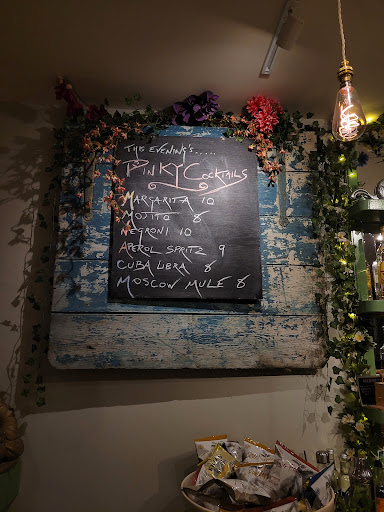 THIS EVENING'S.....
PINKY COCKTAILS
MARGARITA 10
MOJITO 8
NEGRONI 10
APEROL SPRITZ 9
CUBA LIBRA 8
MOSCOW MULE 8